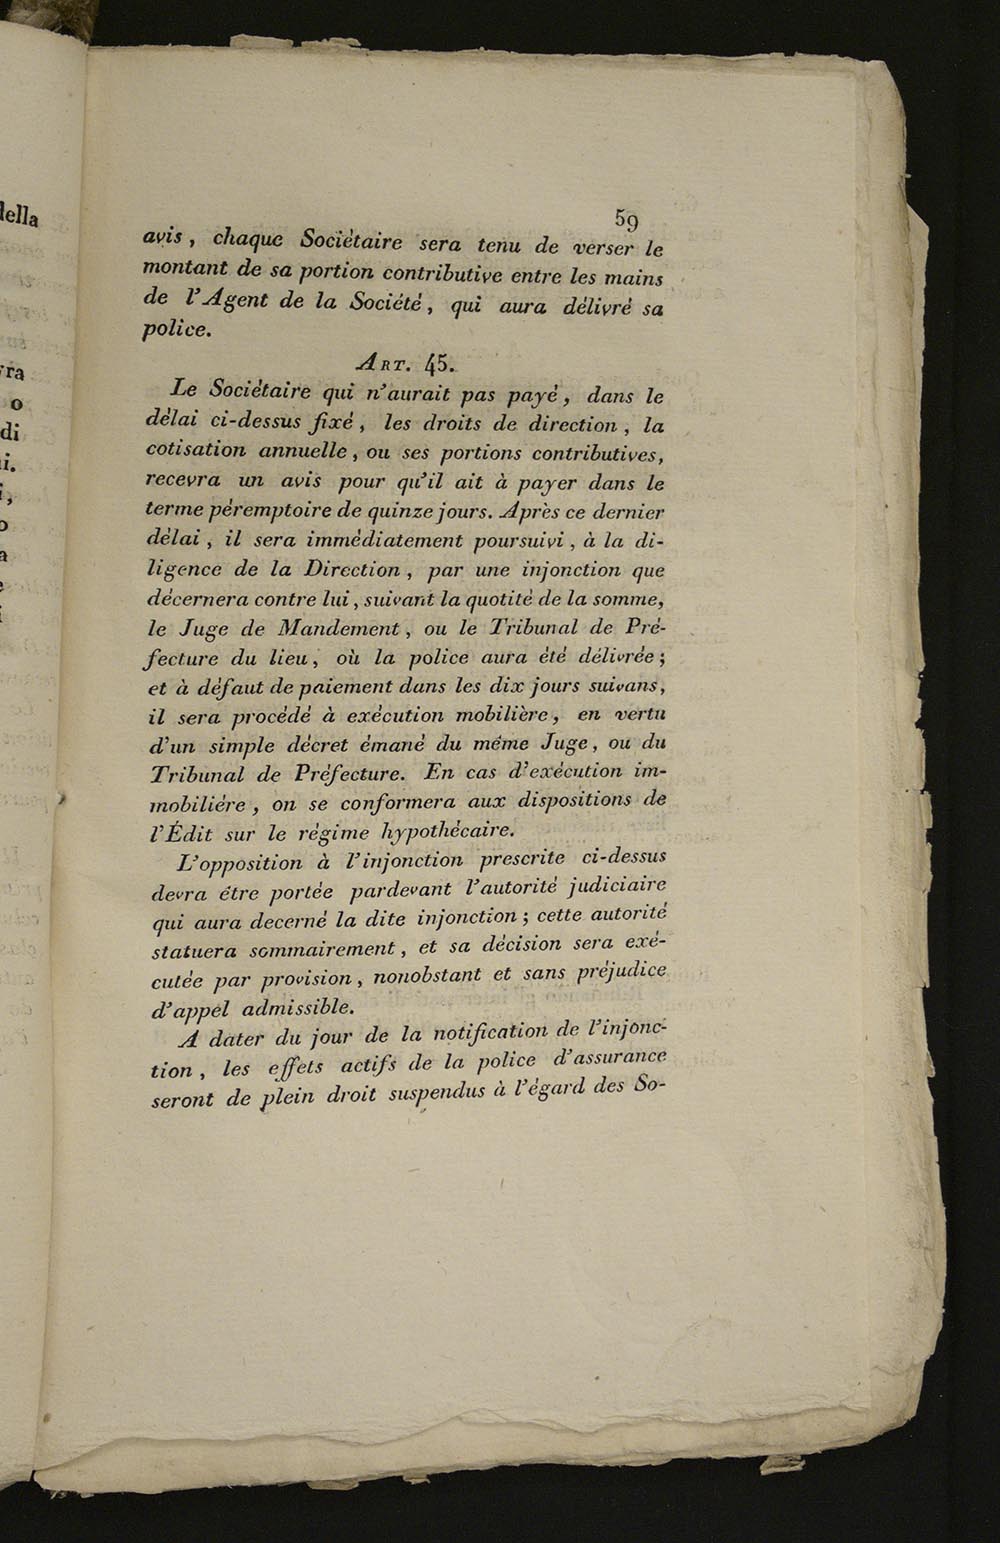 della
vra
o
di
i.
i,
o
a
e
i
59
avis, chaque Sociétaire sera tenu de verser le
montant de sa portion contributive entre les mains
de l'Agent de la Société, qui aura délivré sa
police.
ART. 45.
Le Sociétaire qui n'aurait pas payé, dans le
délai ci-dessus fixé, les droits de direction, la
cotisation annuelle, ou ses portions contributives,
recevra un avis pour qu'il ait à payer dans le
terme péremptoire de quinze jours. Après ce dernier
délai, il sera immédiatement poursuivi, à la di-
ligence de la Direction, par une injonction que
décernera contre lui, suivant la quotité de la somme,
le Juge de Mandement, ou le Tribunal de Pré-
fecture du lieu, où la police aura été délivrée;
et à défaut de paiement dans les dix jours suivans,
il sera procédé à exécution mobilière, en vertu
d'un simple décret émané du même Juge, ou du
Tribunal de Préfecture. En cas d'exécution im-
mobilière, on se conformera aux dispositions de
l'Édit sur le régime hypothécaire.
L'opposition à l'injonction prescrite ci-dessus
devra être portée pardevant l'autorité judiciaire
qui aura decerné la dite injonction; cette autorité
statuera sommairement, et sa décision sera exé-
cutée par provision, nonobstant et sans préjudice
d'appel admissible.
A dater du jour de la notification de l'injonc-
tion, les effets actifs de la police d'assurance
seront de plein droit suspendus à l'égard des So-